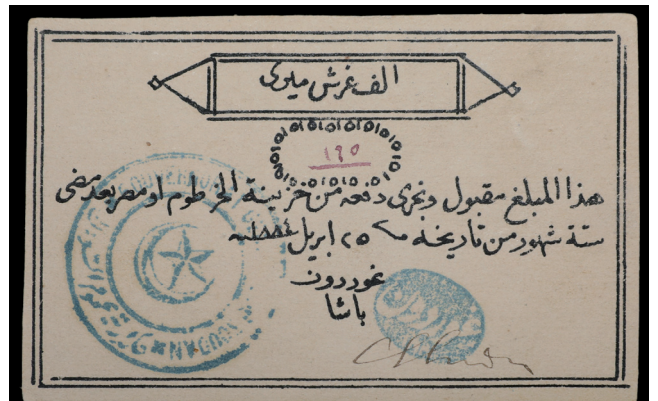 الف غرش ميرى
١٩٥
هذا المبلغ مقبول ويجرى دفعه من خزينة الخرطوم او مصر بعد مضى
ستة شهور من تاريخه ٢٥ ابريل ١٨٨٤ سنة
غوردون
باشا
SOUDAN